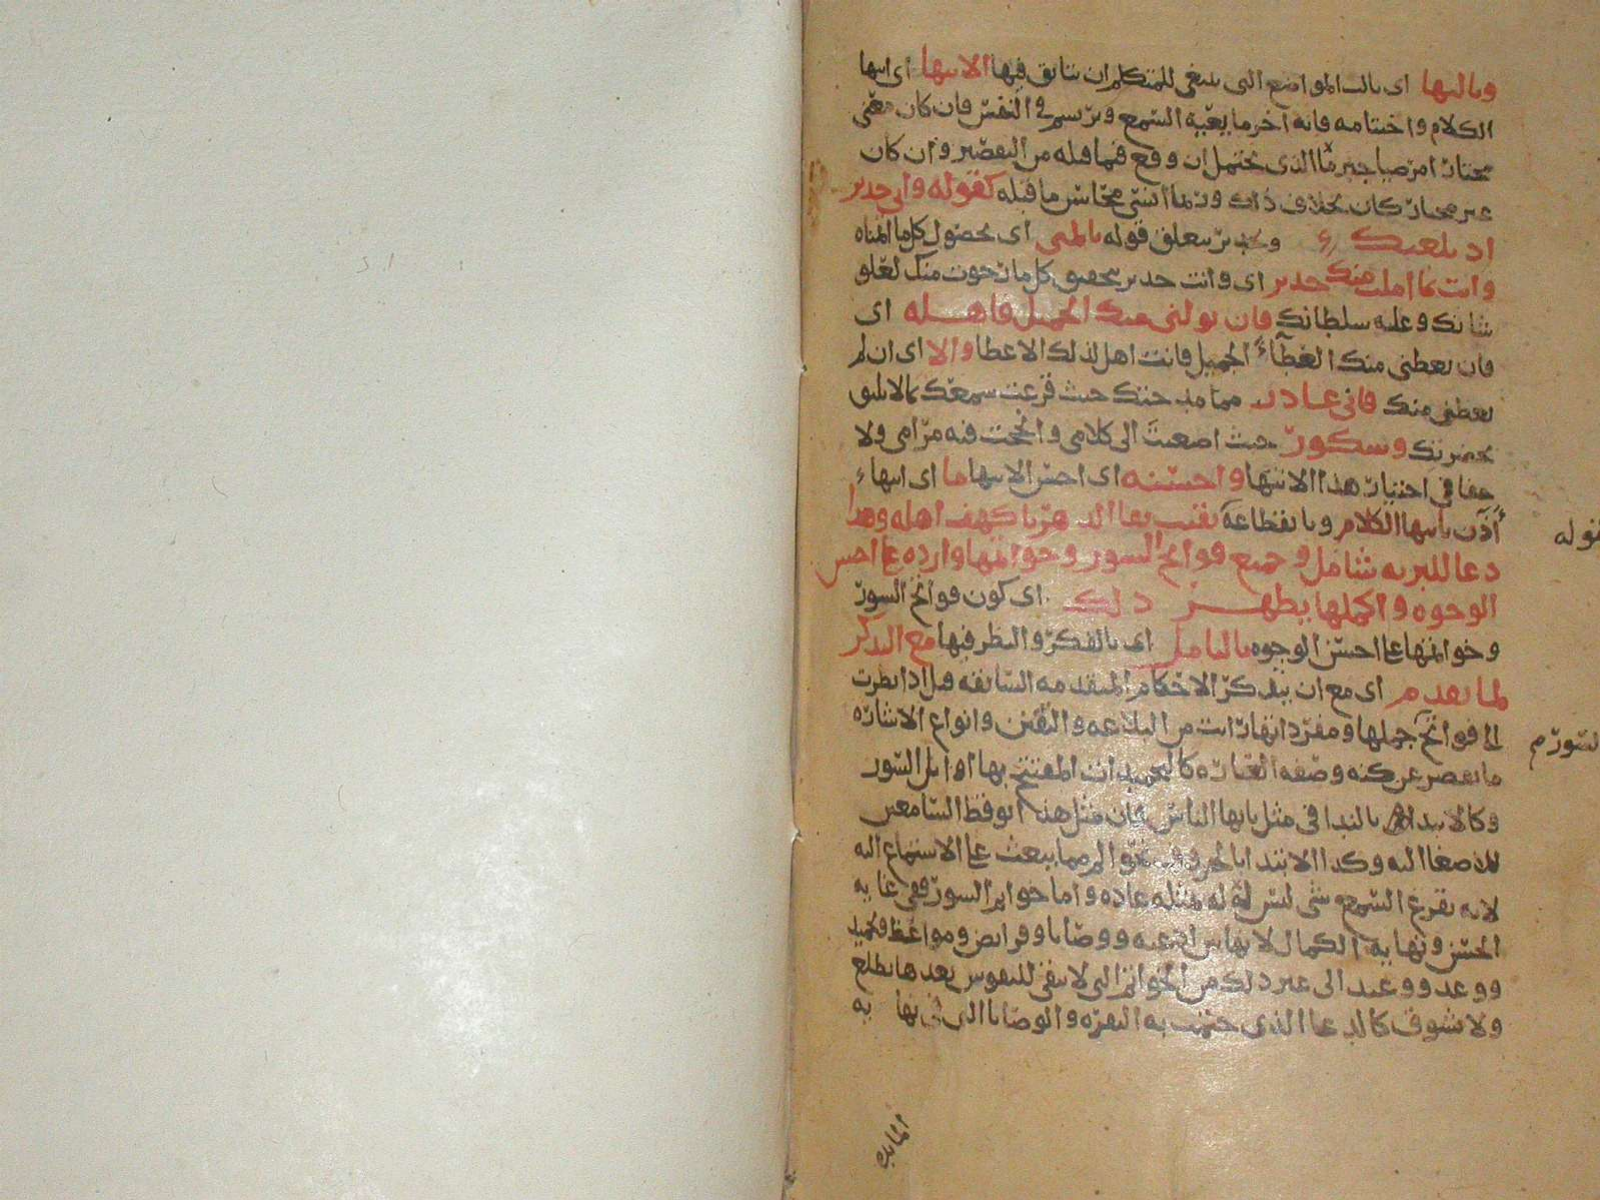 وثالثها اى ثالث المواضع التى ينبغى للمتكلم ان يتانق فيها الانتها اى انتها
الكلام واختتامه فانه اخر ما يعيه السمع ويرتسم فى النفس فان كان معنى
مختارا مرضيا جبر ما الذى يحتمل ان وقع فيما قبله من التقصير وان كان
غير مختار كان بخلاف ذلك وربما انسى محاسن ما قبله كقوله وانى جدير
اذ بلغتك وجدير يتعلق قوله بالمنى اى بحصول كل ما اتمناه
وانت بما املت منك جدير اى وانت جدير بتحقيق كل ما رجوت منك لعلو
شانك وعليه سلطانك فان تولنى منك الجميل فاهله اى
فان تعطنى منك العطاء الجميل فانت اهل لذلك الاعطا والا اى ان لم
تعطنى منك فانى عاذر مما مدحتك حيث قرعت سمعك بما لا يليق
بحضرتك وشكور حيث اصغيت الى كلامى وانجحت فيه مرامى ولا
خفا فى اختيار هذا الانتها واحسنه اى احسن الانتها ما اى انتهاء
أذن بانتها الكلام وبانقطاعه بقيت بقا الدهر يا كهف اهله وهذا
دعا للبريه شامل وجميع فواتح السور وخواتمها وارده على احسن
الوجوه واكملها يظهر ذلك اى كون فواتح السور
وخواتمها على احسن الوجوه بالتامل اى بالفكر والنظر فيها مع التذكر
لما تقدم اى مع ان يتذكر الاحكام المتقدمه السابقه قبل اذا نظرت
الى فواتح جملها ومفرداتها رات من البلاغه والتفنن وانواع الاشاره
ما تقصر عن كنه وصفه العباره كالتحميدات المفتتح بها اوايل السور
وكالابتدا بالندا فى مثل يايها الناس فان مثل هذا يوقظ السامعين
للاصغا اليه وكذا الابتدا بالحروف نحو الم مما يبعث على الاستماع اليه
لانه يقرع السمع شى ليس له بمثله عاده واما خواتم السور ففى غايه
الحسن ونهايه الكمال لانها بين ادعيه ووصايا وفرايض ومواعظ وتحميد
ووعد ووعيد الى غير ذلك من الخواتم التى لا يبقى للنفوس بعدها تطلع
ولا تشوف كالدعا الذى ختمت به البقره والوصايا التى
قوله
السور م